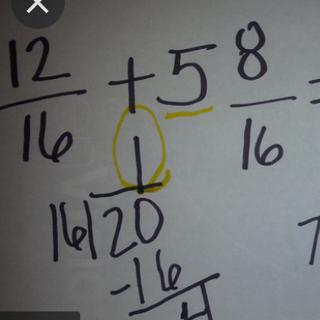 12/16 + 5 8/16 =
1
16)20
-16
4